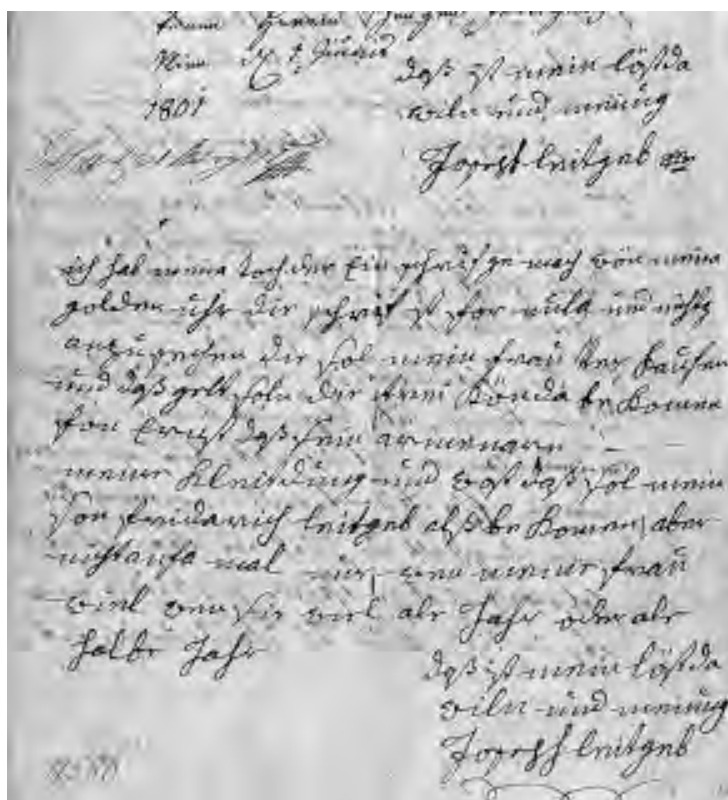 Wien
1801
daß ist mein lösda
wiln und meinug
Joseph leitgeb
ich hab meina tochder Ein schrift ge mach wön meina
golden uhr die schrift ist for null und nichts
anzu sechen die sol mein frau ver kaufen
und daß gelt soln die trei könda be komen
fon daß sein
meiner kleidung und daß sol mein
son friderich leitgeb alß be komen, aber
nicht aufa mal nur wen meiner frau
wiel wen sie wiel ale Jahr oder ale
halbe Jahr
daß ist mein lösda
wiln und meinug
Joseph leitgeb